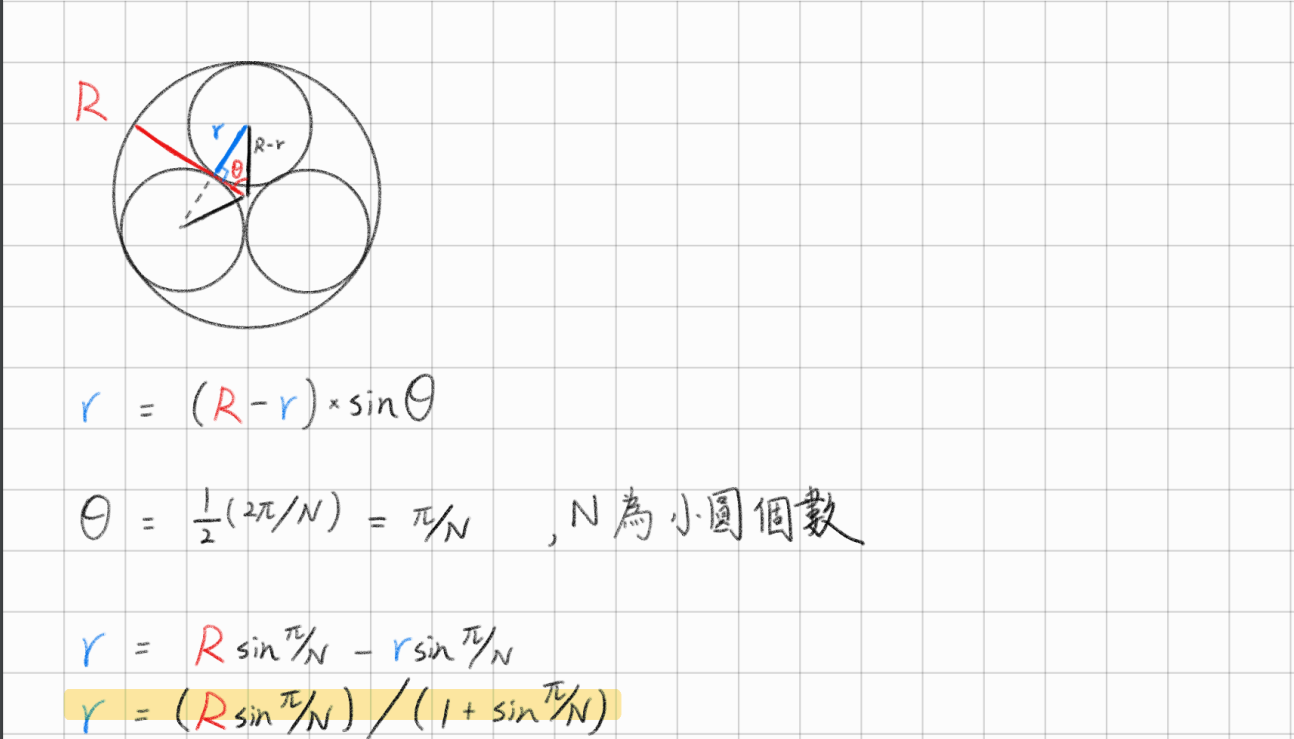 R
r
R-r
θ
r = (R-r)×sinθ
θ = 1/2(2π/N) = π/N ,N為小圓個數
r = Rsinπ/N - rsinπ/N
r = (Rsinπ/N)/(1+sinπ/N)